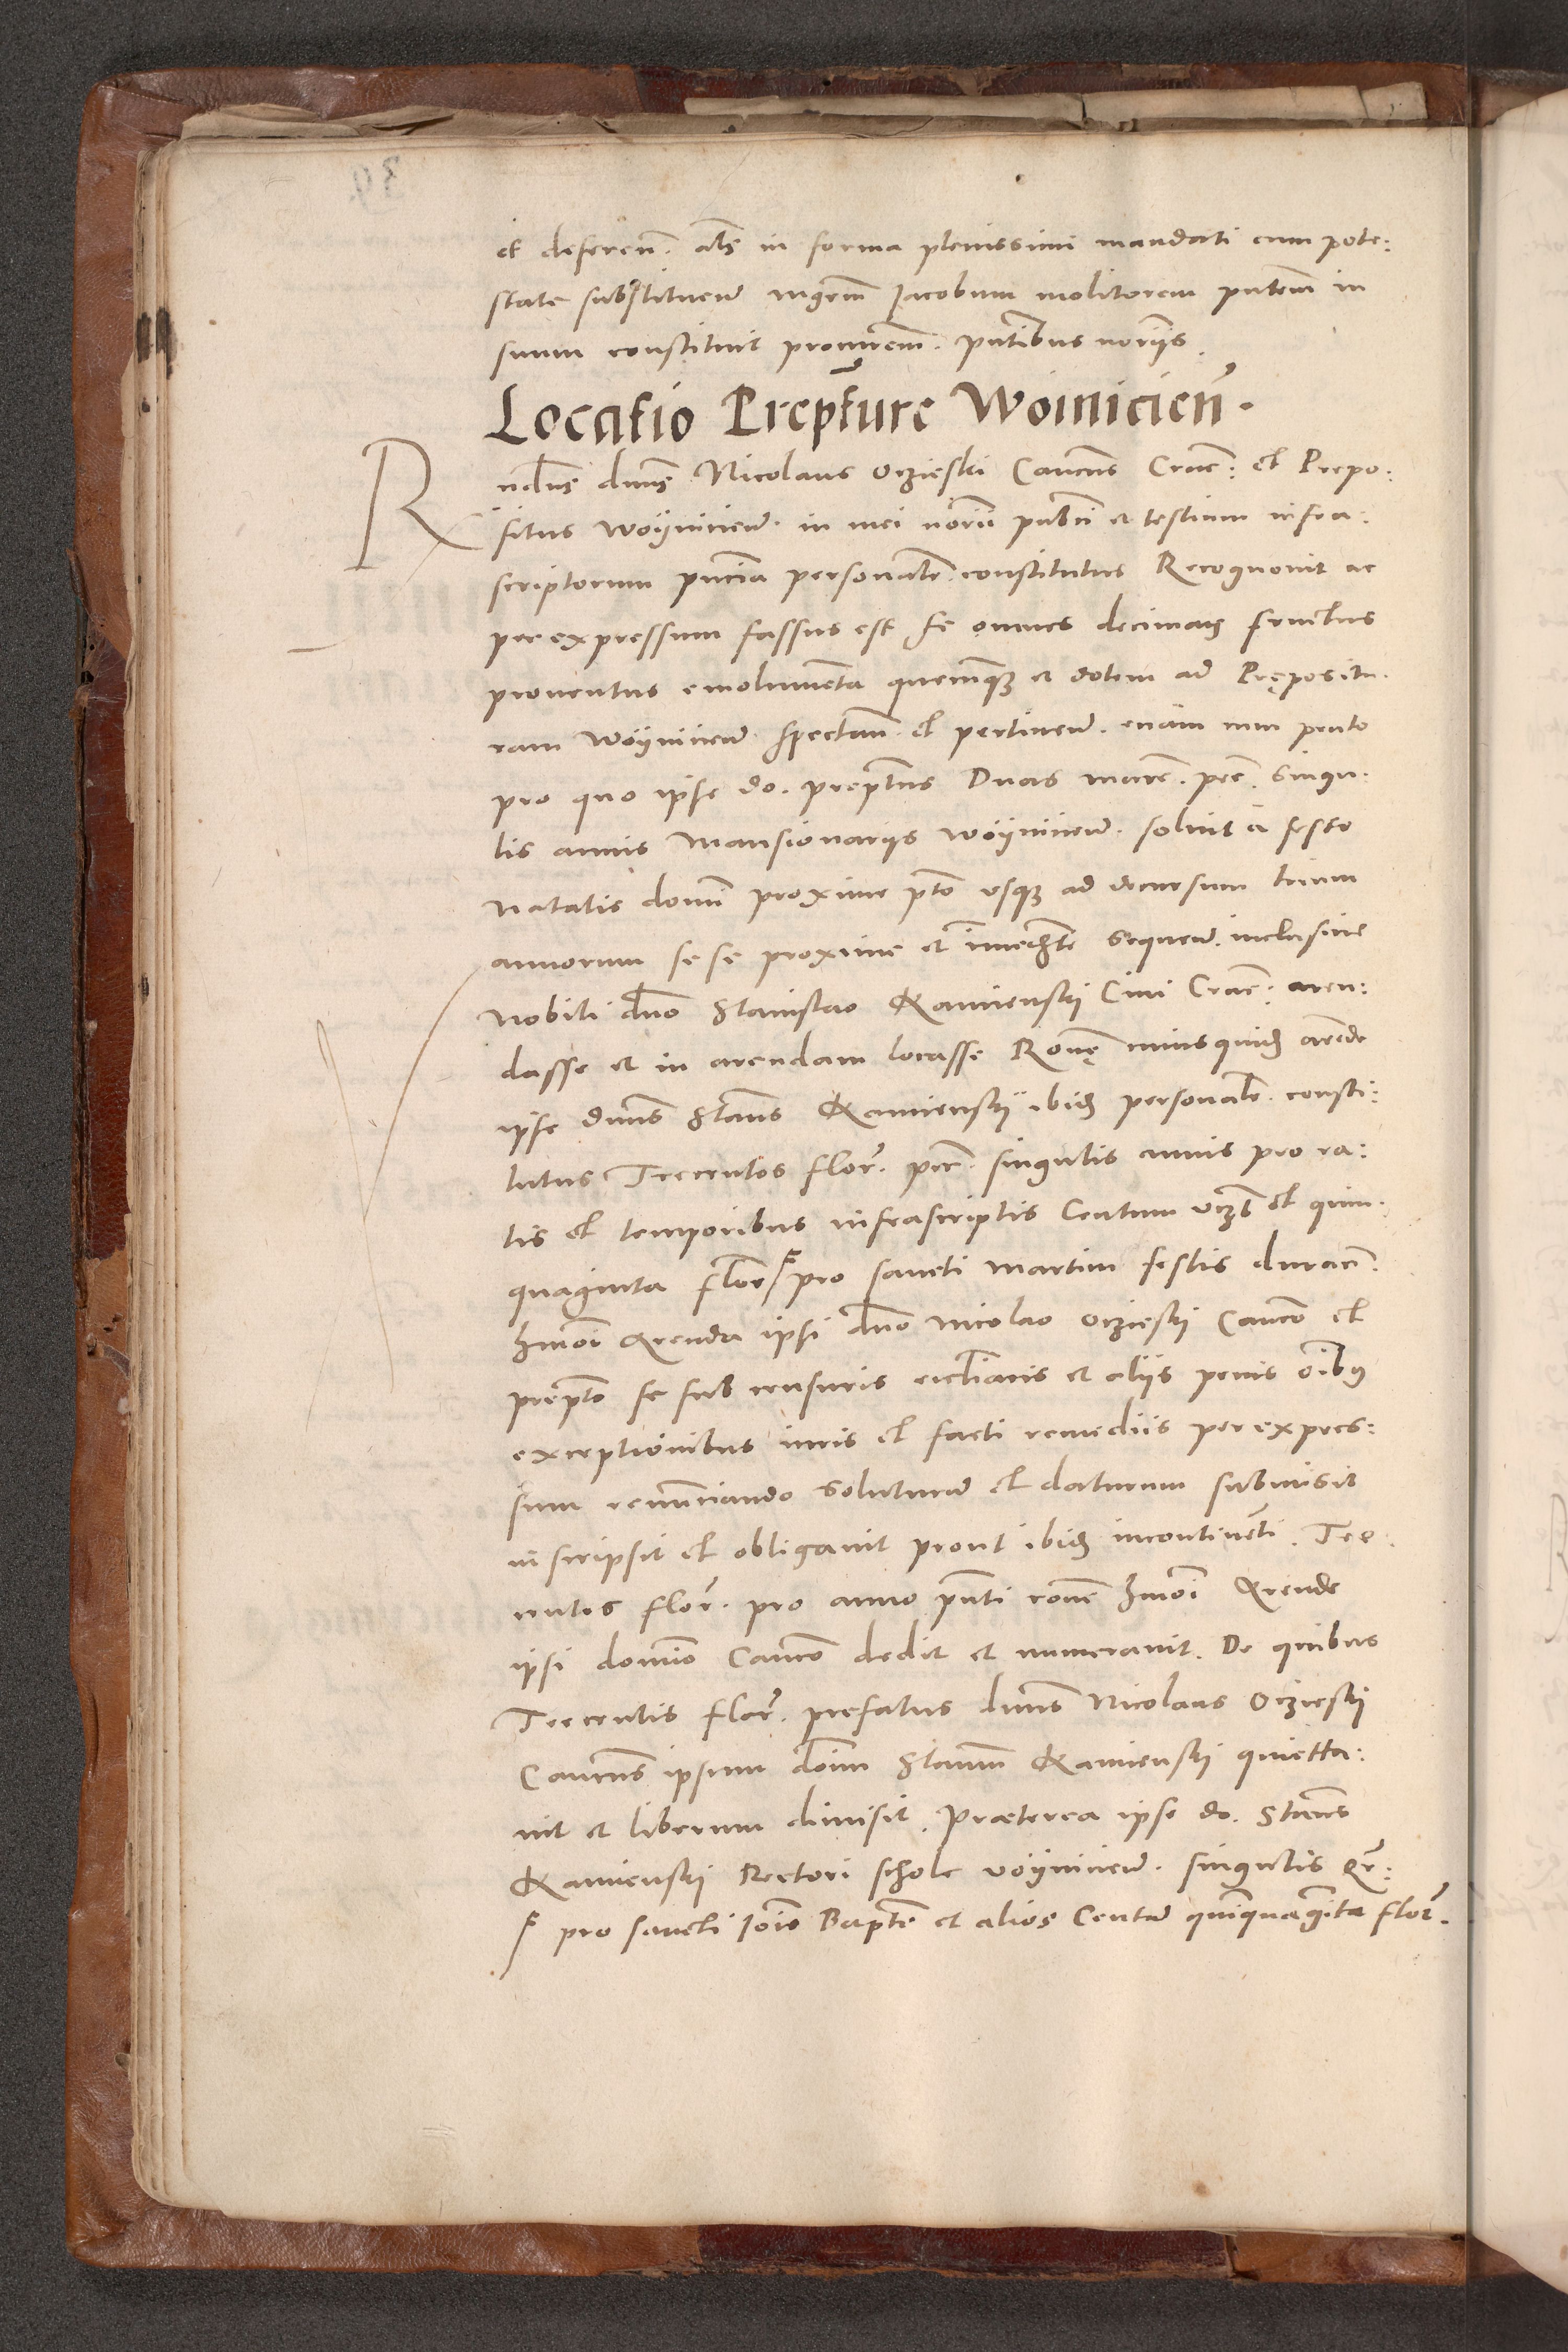 et deferen. als in forma plenissimi mandati cum pote:
state substituen mgrm Jacobum molitorem pntem in
suum constituit procurem. pntibus noriis.
Locatio Prepture Woinicien.
Rndus dnus Nicolaus Oczieski Cancus Crac: et Prepo:
situs Woyninicen. in mei norii publici et testium infra:
scriptorum pncia personalr. constitutus Recognovit ac
per expressum fassus est se omnes decimas fructus
proventus emolumenta quecunq et dotem ad Prępositu.
ram Woynicien. spectan. et pertinen. etiam cum prato
pro quo ipse do. preptus Duas marc. pec. singu:
lis annis Mansionariis Woynicien. solvit a festo
Natalis domi proxime pto usq ad decursum trium
annorum se se proxime et immedte sequen. inclusive
Nobili dno Stanislao Kamienskj Civi Crac: aren:
dasse et in arendam locasse Ronę cuiusquid arende
ipse dnus Stanus Kamienskij ibid personalr. consti:
tutus Trecentos flor. pec. singulis annis pro ra:
tis et temporibus infrascriptis Centum vczt et quin
quaginta flor pro sancti Martini festis duracn.
hmoi Arenda ipsi dno Nicolao Oczieskj Canco et
prepto se sub censuris eccliacis et aliis penis oibus
exceptionibus iuris et facti remediis per expres:
sum renunciando soluturum et daturum submisit
inscripsit et obligavit prout ibid incontinenti. Tre
centos flor. pro anno pnti rone hmoi Arende
ipsi domino Canco dedit et numeravit. De quibus
Trecentis flor. prefatus dnus Nicolaus Oczieskj
Cancus ipsum doim Stanum Kamienskj quietta:
vit et liberum dimisit. Præterea ipse do. Stanus
Kamienskj Rectori schole Woynicien. singulis Qr:
pro sancti Jois Bapte et alios Centum quinquaginta flor.